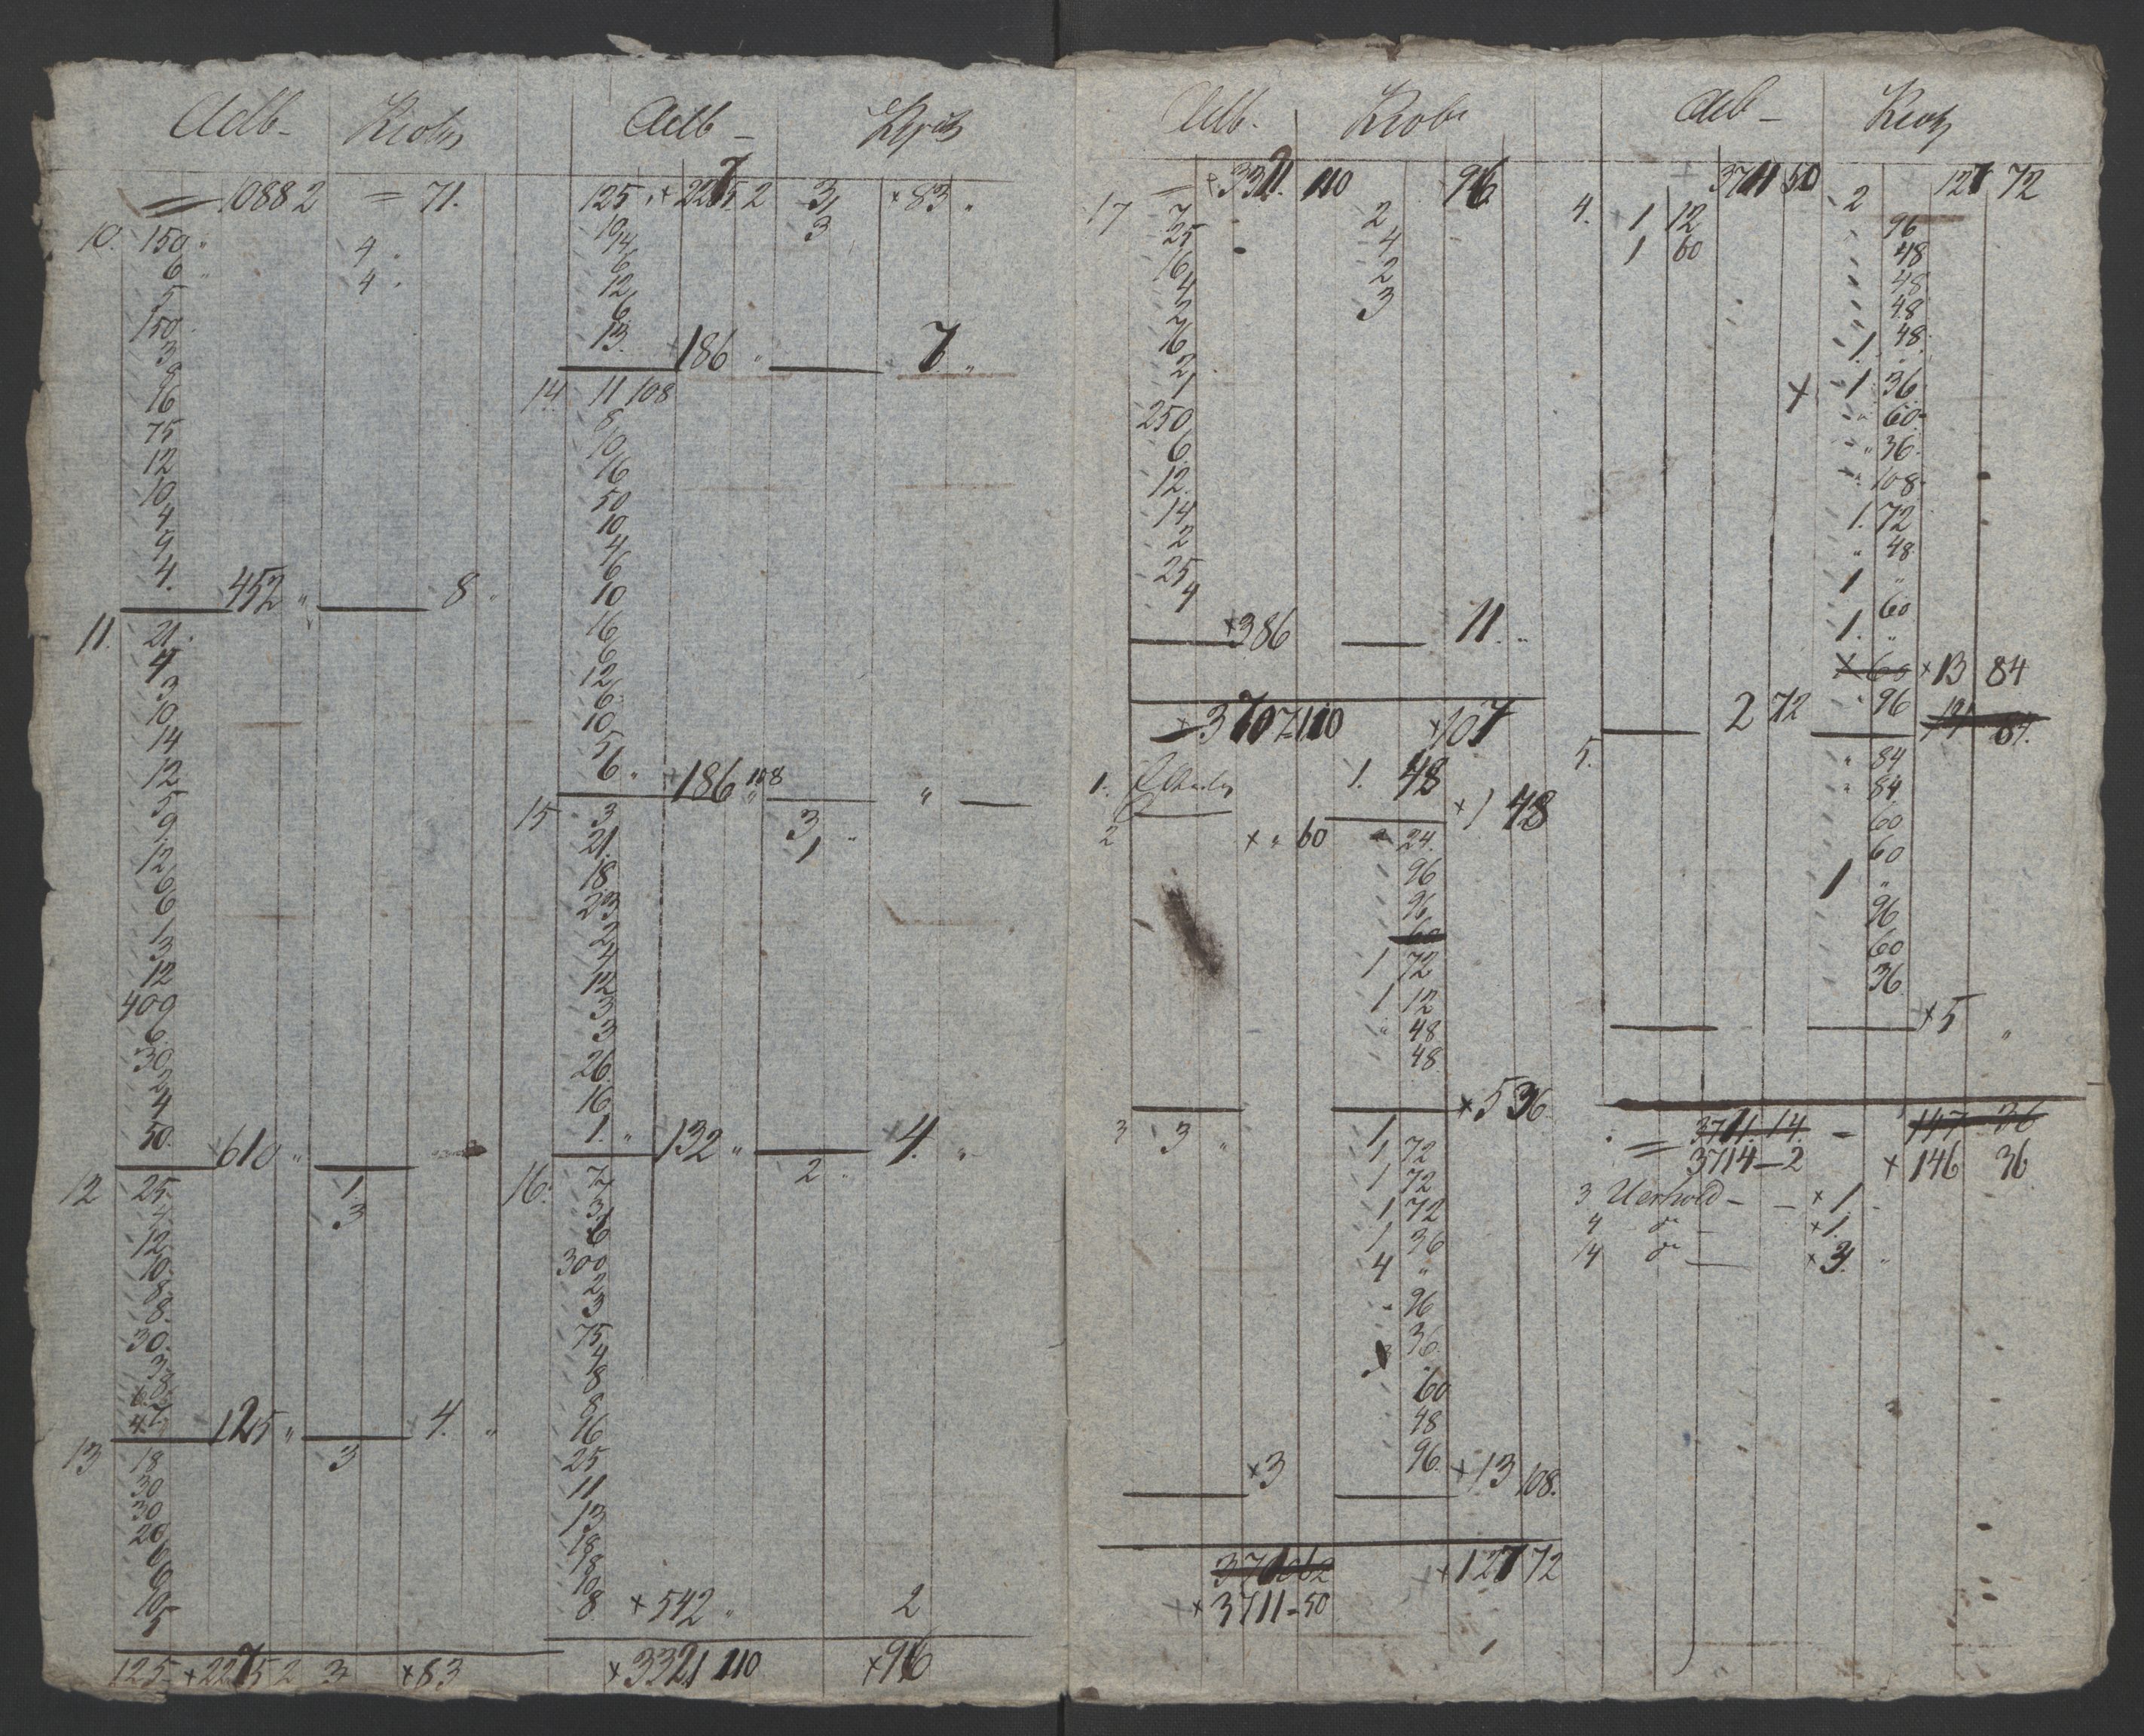 Adb- 
10882 = 71.
10. 150 4
6 4
5
150
3
9
16
75
12
10
4
4
4.
452 " 8 "
11. 21.
4
3
10
14
12
5
9
12
6
6
1
3
12
400
6
30
2
4
50.
×610 "
12 25 1
4 3
12
10
8
8.
30.
3
8
6
4
125 " 4. "
13 18 3
30
30
20
6
6
10
5
125 ×2275 2 3 ×83
Adb -
125 ×2275 2 3 ×83 "
10 3
14
6
12
6
13.
×186 " 7 "
14 11 108
8
10
16
50
10
4
6
10
16
6
12
6
10
5
6 "
186 108 "
15 3 3
21. 1
18
23
2
4
12
3
3
26
16
1. "
132 " 4. "
16. 7 2
3
6
300
2
3
75
4
8
8
16
25
11
13
18
18
10
8
×542 " 2
×3321 110 ×96
Adb.
×3321. 110 96
17 7 2
25 4
16 2
4 3
2
16
2
1
250
6
12.
14
2
25
4
×386 11. "
×3707 110 ×107
1. 1. 48
×1 48
2 × " 60 24.
96
96
60
1 72
1 12
" 48
48
×5 36
3 3 " 1
1 72
1 72
1 72
1 36
4 "
96
36
60
48
96
×3 ×13 108.
×127 72
×3711-50
Adb -
3711 50 127 72
4. 1 12 2
1 60 96
48
48
48
1. 48
× 1 36
" 60
" 36
" 108
1. 72
" 48
1 "
60
1. "
60 ×13 84
2 72 96
5. " 84
" 84
60
60
1 "
96
60
36
×5 "
3711. 14. - 147 36
= 3714-2 ×146 36
3 - - ×1
4 - ×1
14 - ×3.